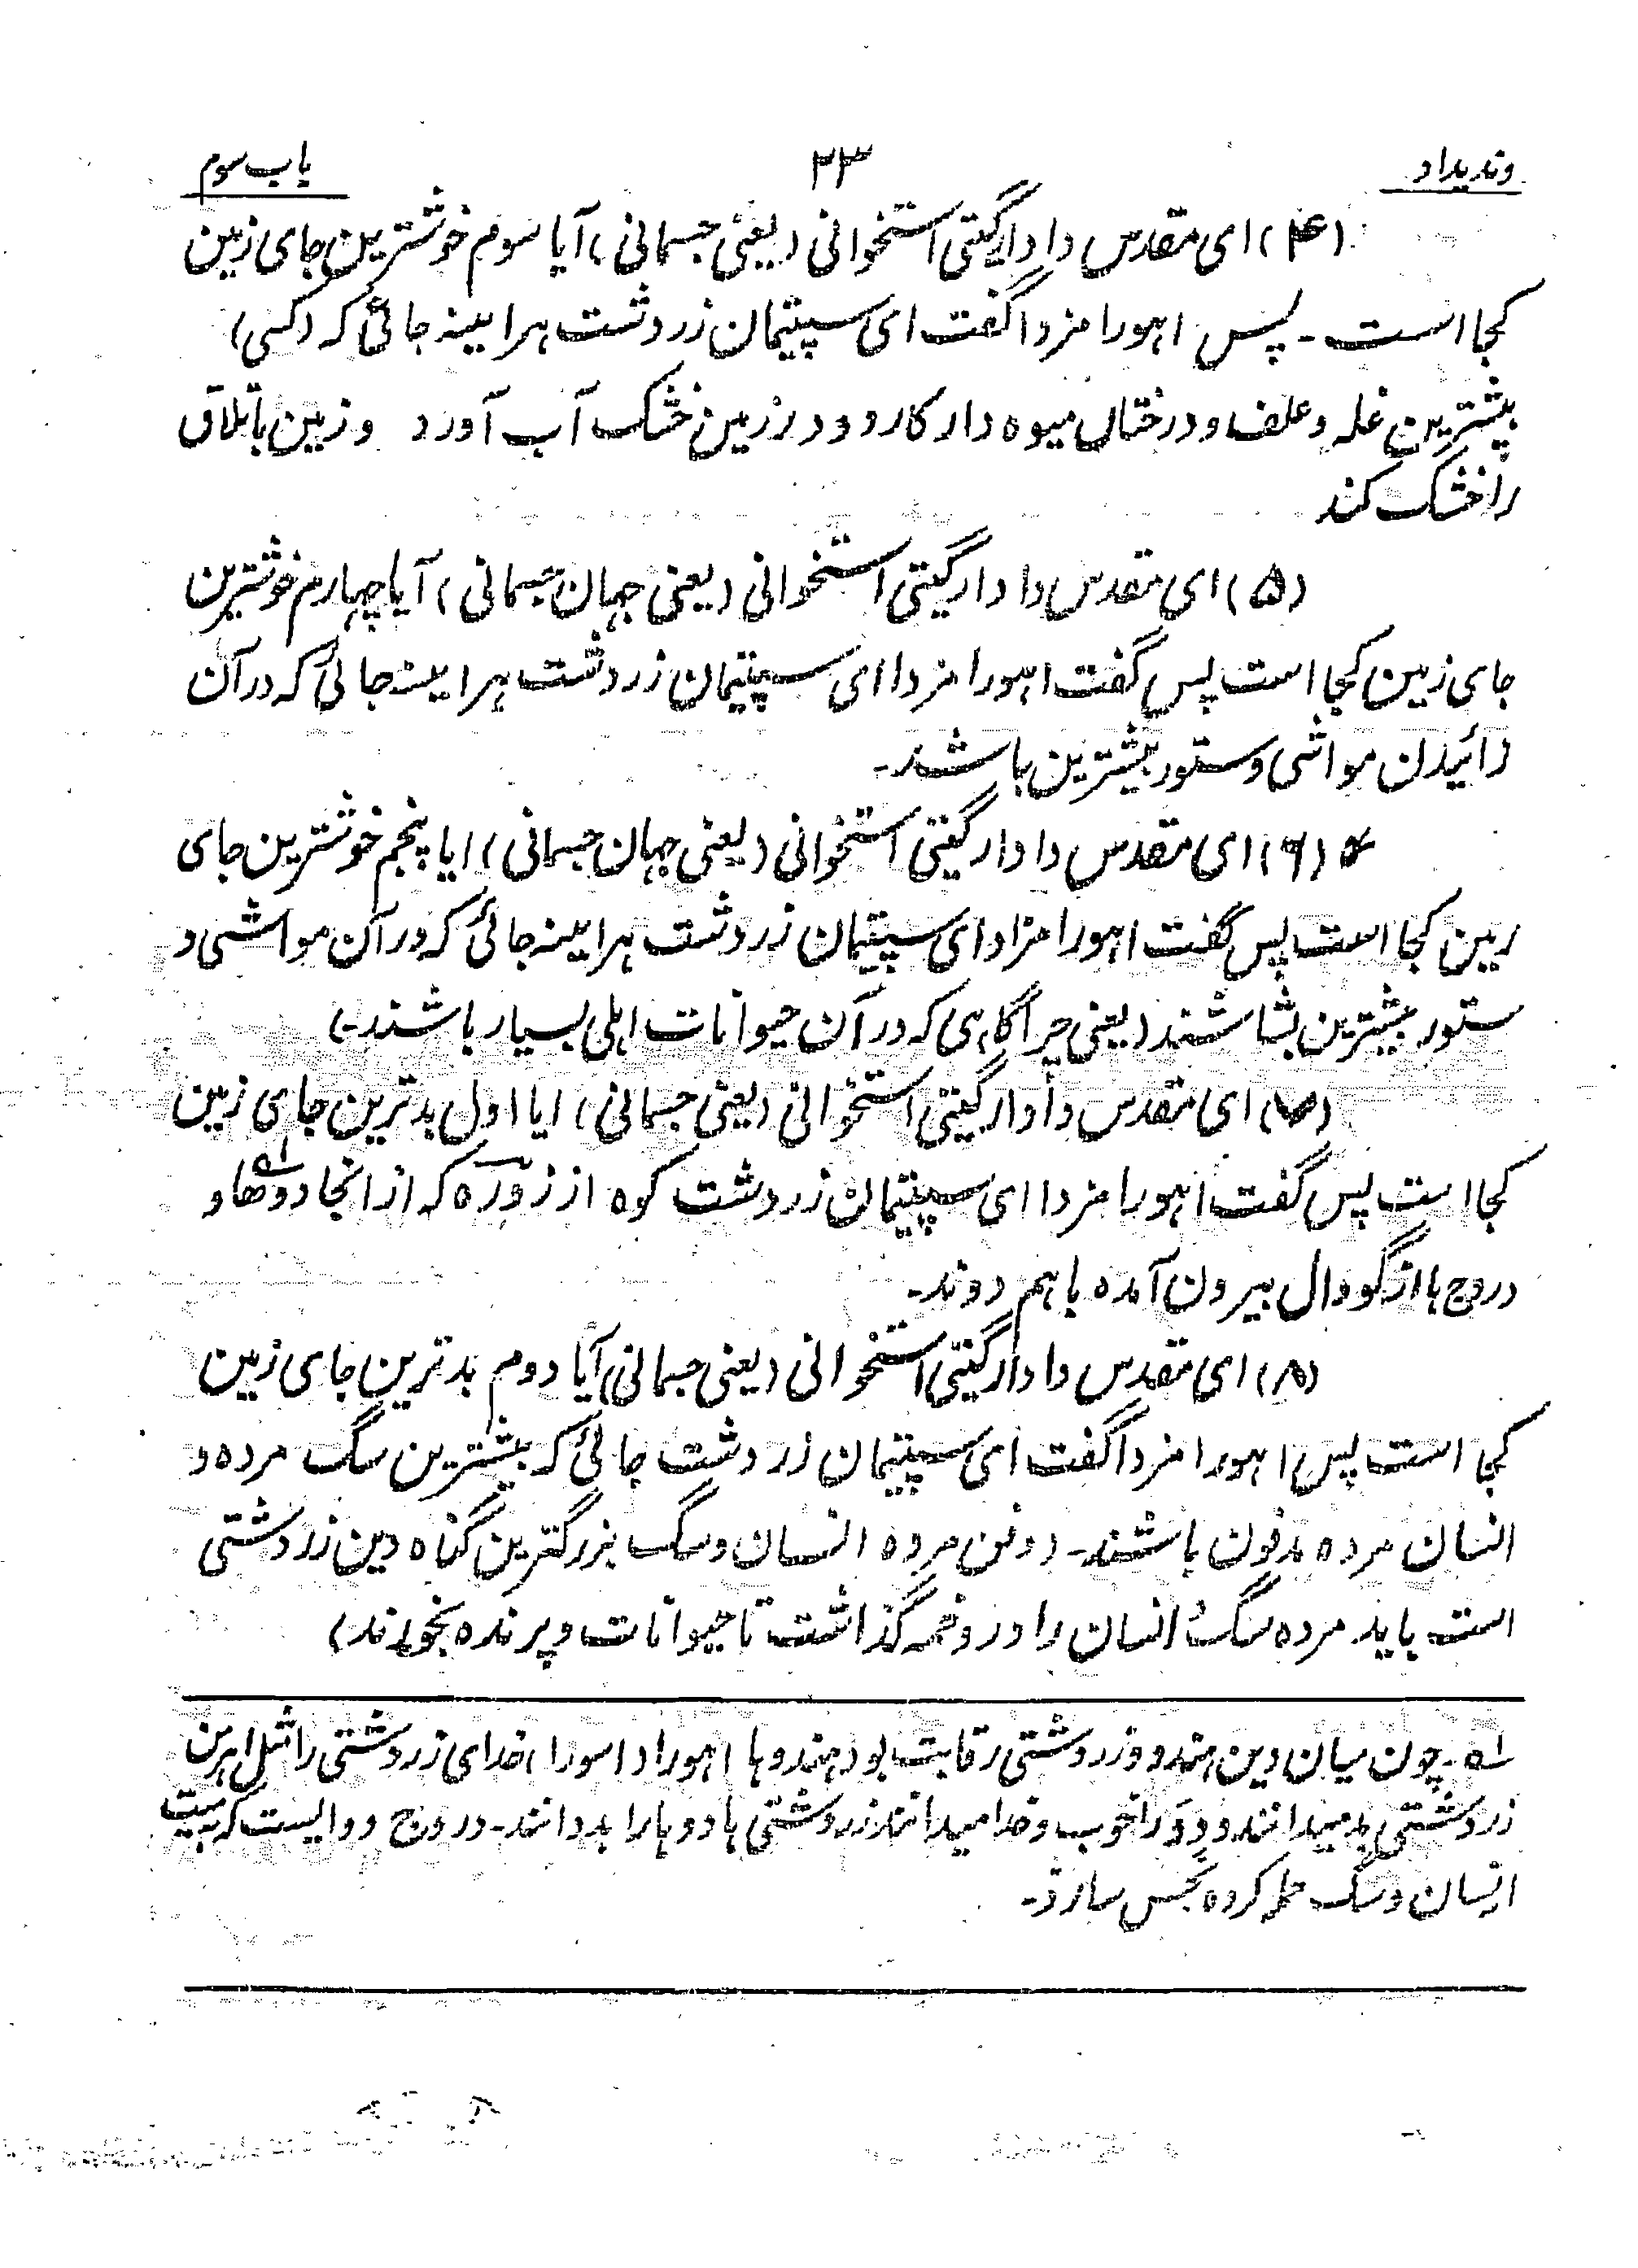 وندیداد ۲۳ باب سوم
(۴) ای مقدس دادار گیتی استخوانی (یعنی جسمانی) آیا سوم خوشترین جای زمین
کجا است - پس اهورا مزدا گفت ای سپیتمان زردشت هرآینه جائی که (کسی)
بیشترین غله و علف و درختان میوه دار کارد و در زمین خشک آب آورد و زمین باتلاق
را خشک کند
(۵) ای مقدس دادار گیتی استخوانی (یعنی جهان جسمانی) آیا چهارم خوشترین
جای زمین کجا است پس گفت اهورا مزدا ای سپیتمان زردشت هرآینه جائی که در آن
زائیدن مواشی و ستور بیشترین باشد -
(۶) ای مقدس دادار گیتی استخوانی (یعنی جهان جسمانی) ایا پنجم خوشترین جای
زمین کجا است پس گفت اهورا مزدا ای سپیتمان زردشت هرآینه جائی که در آن مواشی و
ستور بیشترین بشاشند (یعنی چراگاهی که در آن حیوانات اهلی بسیار باشند)
(۷) ای مقدس دادار گیتی استخوانی (یعنی جسمانی) ایا اول بدترین جای زمین
کجا است پس گفت اهورا مزدا ای سپیتمان زردشت کوه ارزوره که از انجا دوها ۱ه و
دروج ها از گودال بیرون آمده باهم دوند -
(۸) ای مقدس دادار گیتی استخوانی (یعنی جسمانی) آیا دوم بدترین جای زمین
کجا است پس اهورا مزدا گفت ای سپیتمان زردشت جائی که بیشترین سگ مرده و
انسان مرده مدفون باشند - (دفن مرده انسان و سگ بزرگترین گناه دین زردشتی
است باید مرده سگ و انسان را در دخمه گذاشت تا حیوانات و پرنده بخورند)
۱ه - چون میان دین هندو و زردشتی رقابت بود هندوها اهورا (اسورا) خدای زردشتی را مثل اهرمن
زردشتی بد میدانند و دِوَ را خوب و خدا میدانند زردشتی ها دوها را بد دانند - دروج دوایست که بمیت
انسان و سگ حمله کرده نجس سازد -